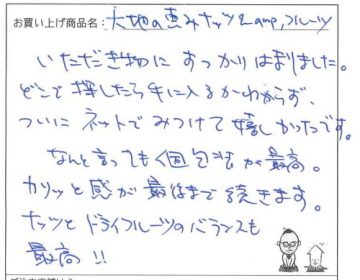 お買い上げ商品名：大地の恵みナッツ&amp,フルーツ
いただき物にすっかりはまりました。
どこで探したら手に入るかわからず、
ついにネットでみつけて嬉しかったです。
なんと言っても個包装が最高。
カリッと感が最後まで続きます。
ナッツとドライフルーツのバランスも
最高!!